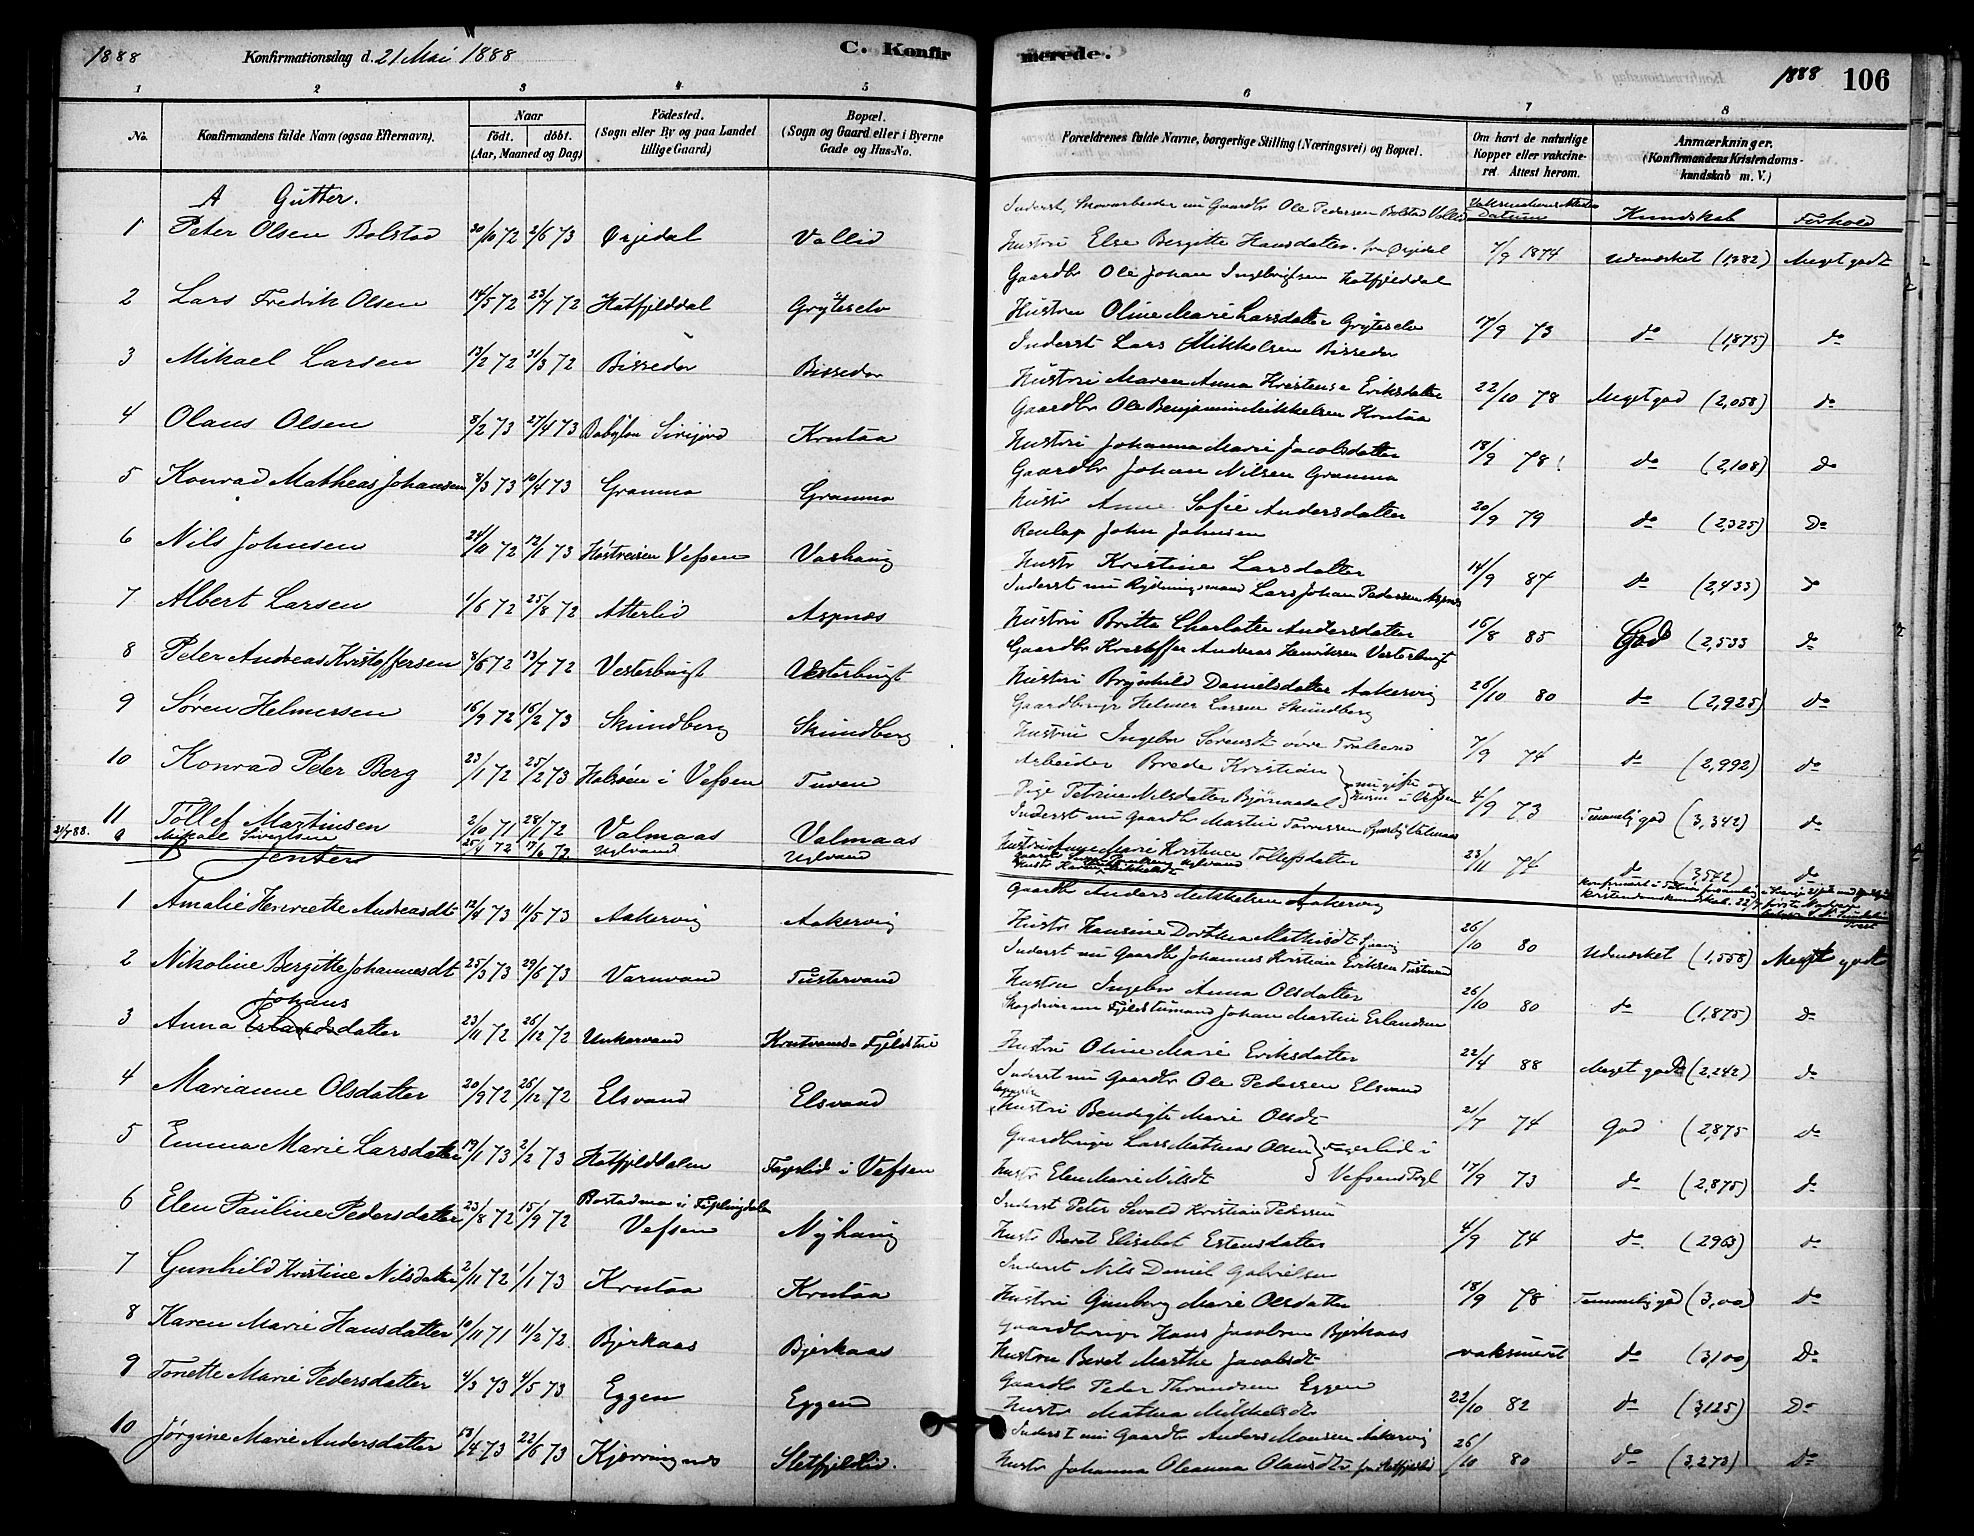 1888 Konfirmationsdag d. 21 Mai 1888 C. Konfirmerede. 1888 106
1 2 3 4 5 6 7 8
No. Konfirmandens fulde Navn (ogsaa Efternavn). Naar født. døbt. (Aar, Maaned og Dag) Fødested. (Sogn eller By og paa Landet tillige Gaard) Bopæl. (Sogn og Gaard eller i Byerne Gade og Hus-No. Forældrenes fulde Navne, borgerlige Stilling (Næringsvei) og Bopæl. Om havt de naturlige Kopper eller vakcineret. Attest herom. Anmærkninger. (Konfirmandens Kristendomskundskab m. V.)
A Gutter. Datum Kundskab Forhold
Inderst, Skovarbeider nu Gaardbr Ole Pedersen Bolstad Vallid
1 Peter Olsen Bolstad 20/10 72 2/6 73 Ørjedal Vallid Hustru Else Bergitte Hansdatter fra Ørjedal 7/9 1874 Udmærket (1,382) Meget godt
Gaardbr Ole Johan Ingebrigtsen Hatfjelddal
2 Lars Fredrik Olsen 14/5 72 23/7 72 Hatfjelddal Gryteselv Hustru Oline Marie Larsdatter Gryteselv 17/9 73 do (1,875) do
Inderst Lars Mikkelsen Bissedor
3 Mikael Larsen 13/2 72 21/3 72 Bissedor Bissedor Hustru Maren Anna Kristense Eriksdatter 22/10 78 Meget god (2,058) do
Gaardbr Ole Benjamin Mikkelsen Krutaa
4 Olaus Olsen 8/2 73 27/4 73 Babylon Krutaa Hustru Johanna Marie Jacobsdatter 18/9 78 do (2,108) do
Gaardbr Johan Nilsen Granmo
5 Konrad Mathias Johansen 8/3 73 10/4 73 Granmo Granmo Hustr Anne Sofie Andersdatter 20/9 79 do (2,325) Do
Renlap John Johnsen
6 Nils Johnsen 24/11 72 12/1 73 Vefsen Hustr Kristine Larsdatter 14/9 87 do (2,433)
Inderst nu Rydningsmand Lars Johan Pedersen Aspnes
7 Albert Larsen 1/6 72 25/8 72 Atterlid Aspnes Hustru Britta Charlotte Andersdatter 16/8 85 God (2,533 do
Gaardbr Kristoffer Andreas Henriksen Vesterbugt
8 Peter Andreas Kristoffersen 8/6 72 13/7 72 Vesterbugt Vesterbugt Hustru Brynhild Danielsdatter Aakervig 26/10 80 do (2,925) do
Gaardbruger Helmer Larsen Skundberg
9 Søren Helmersen 16/9 72 16/2 73 Skundberg Skundberg Hustru Ingebor Sørensdt 7/9 74 do (2,992) do
Arbeider Brede Kristian
10 Konrad Peter Berg 23/1 72 25/2 73 Halsøen i Vefsen Tuven Pige Petrine Nilsdatter Bjørnaadal 4/9 73 Temmelig god (3,342) do
Inderst nu Gaardbr Martin Valmaas
11 Tollef Martinsen 2/10 71 28/1 72 Valmaas Valmaas Hustru Inge Marie Kristence Tollefsdatter 23/11 74 do (3,542) do
21/7 88. 9 Mikael Sivertsen 25/4 72 17/6 72 Uglvand Uglvand
Jenter
Gaardbr Anders Mikkelsen Aakervig
1 Amalie Henriette Andreasdt 12/4 73 11/5 73 Aakervig Aakervig Hustr Hansine Dorthea Mathisdt 26/10 80 Udmærket (1,558) Meget godt
Inderst nu Gaardbr Johannes Kristian Eriksen Tustervand
2 Nikoline Bergitte Johannesdt 25/3 73 29/6 73 Varnvan Tustervand Hustru Ingebor Anna Olsdatter 26/10 80 do (1,875) Do
nu Fjeldstuemand Johan Martin Erlandsen
3 Anna Johans Erlandsdatter 23/11 72 26/12 72 Unkervand Krutvands Fjeldstue Hustru Oline Marie Eriksdatter 22/4 88 Meget god (2,242) do
Inderst nu Gaardbr Ole Pedersen Elsvand
4 Marianne Olsdatter 20/9 72 26/12 72 Elsvand Elsvand Hustru Bendigte Marie Olsdt 21/7 74 God (2,875 do
Gaardbruger Lars Mathias Olsen Fagerlid i
5 Emma Marie Larsdatter 19/1 73 2/2 73 Hatfjelddalen Fagerlid i Vefsen Hustr Elen Marie Nilsdt Vefsens Pgl 17/9 73 do (2,875) do
Inderst Peter Sevald Kristian Pedersen
6 Elen Pauline Pedersdatter 23/8 72 15/9 72 Vefsen Nyhaug Hustr Beret Elisabet Estensdatter 4/9 74 do (2963) do
Inderst Nils Daniel Gabrielsen
7 Gunhild Kristine Nilsdatter 2/11 72 1/1 73 Krutaa Krutaa Hustru Gunborg Marie Olsdatter 18/9 78 Temmelig god (3,00) do
Gaardbruger Hans Jacobsen Bjerkaas
8 Karen Marie Hansdatter 10/11 71 11/2 72 Bjerkaas Bjerkaas Hustru Beret Marthe Jacobsdt vaksineret do (3,100) Do
Gaardbr Peder Thrandsen Eggen
9 Tonette Marie Pedersdatter 4/3 73 4/5 73 Eggen Eggen Hustr Mathea Mikkelsdt 22/10 82 do (3,125) Do
Inderst nu Gaardbr Anders Monsen Aakervig
10 Jørgine Marie Andersdatter 13/4 73 22/6 73 Kjerringnes Sletfjeldlid. Hustr Johanna Oleanna Olausdt 26/10 80 do (3,273) Do